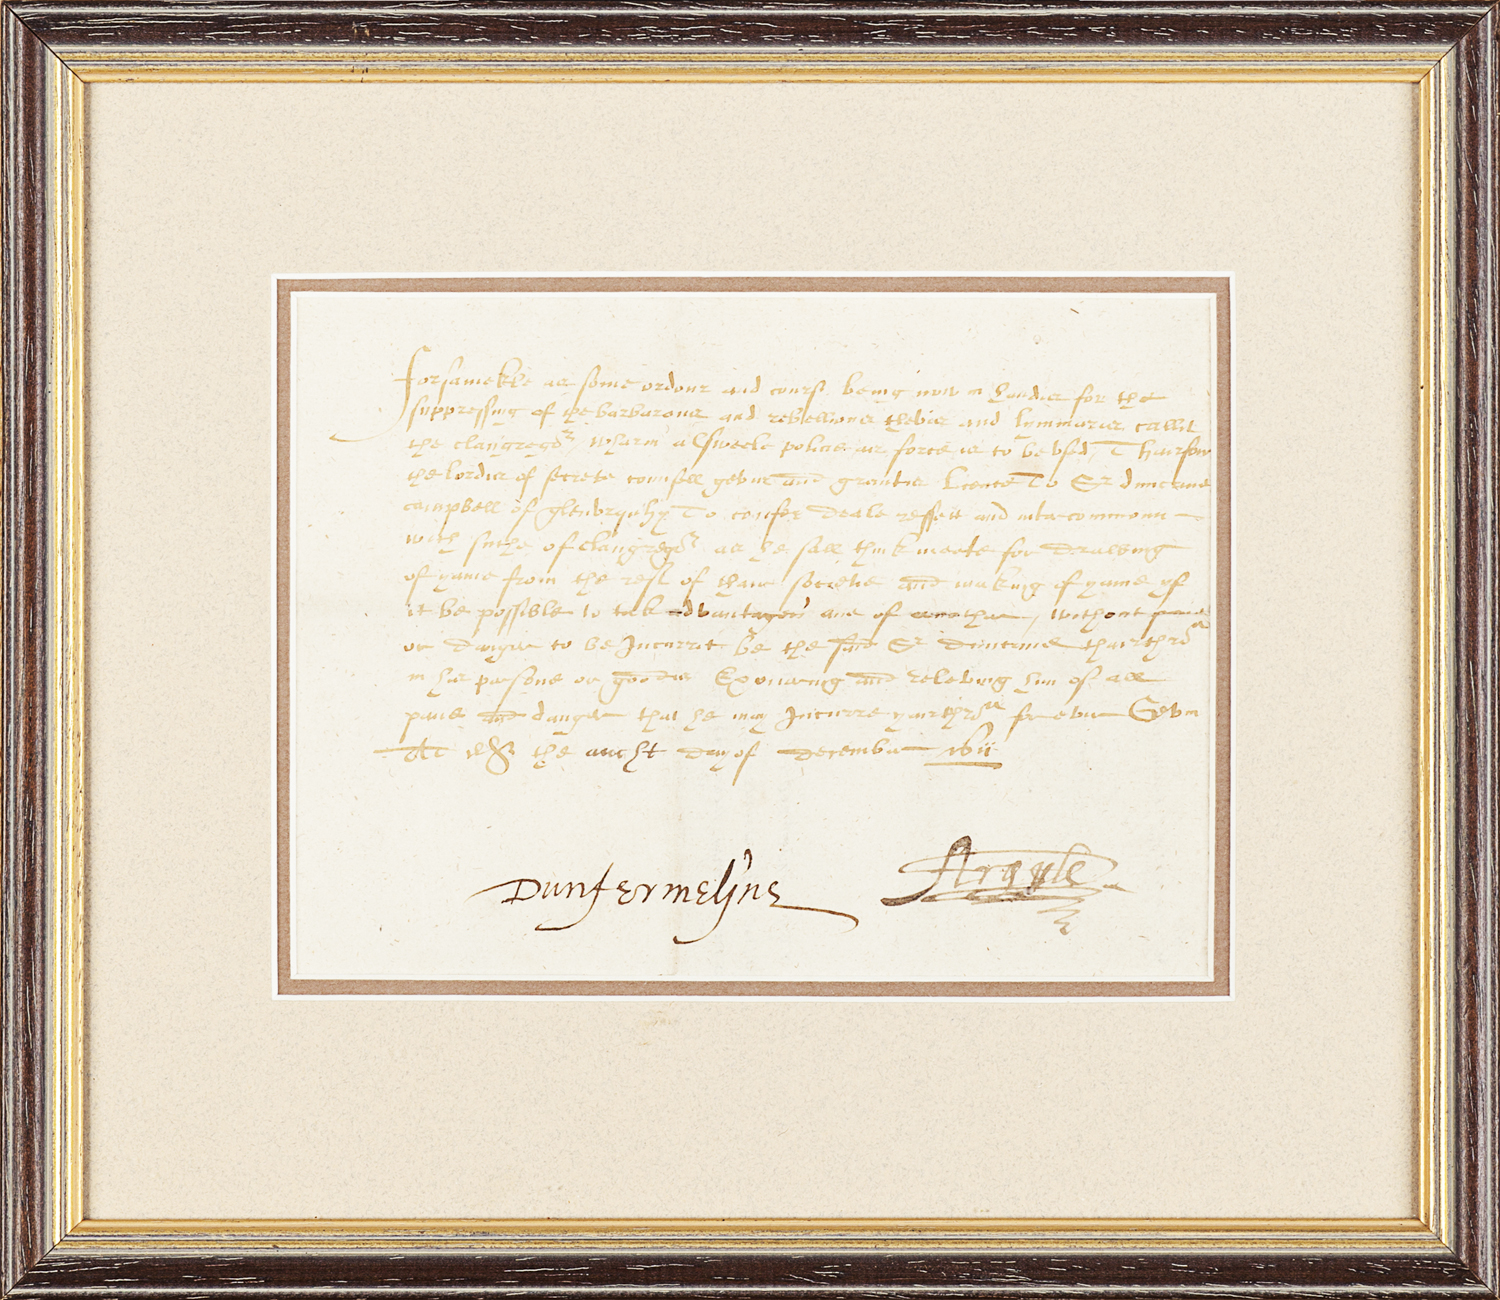 Forsamekle as some ordour and cours being now in handis for the
suppressing of the barbarous and rebellious thevis and lymmaris callit
the clangregour wharin alsweele policie as force is to be usd, Thairfoir
the lordis of secrete counsell gevis and grantis licence To Sr duncane
campbell of glenurquhy To confer deale resset and intercommoun
with suche of clangregour as he sall think meete for drawing
of yame from the rest of thair societie and making of yame yf
it be possible to tak advantage ane of another, without pane
or danger to be Incurrit be the said Sr duncane thairthrou
in his persone or goodis Exonering and releving him of all
pane and danger that he may Incurre yairthrou for ever Gevin
at the aucht day of december 1611
Dunfermelyne Argyle